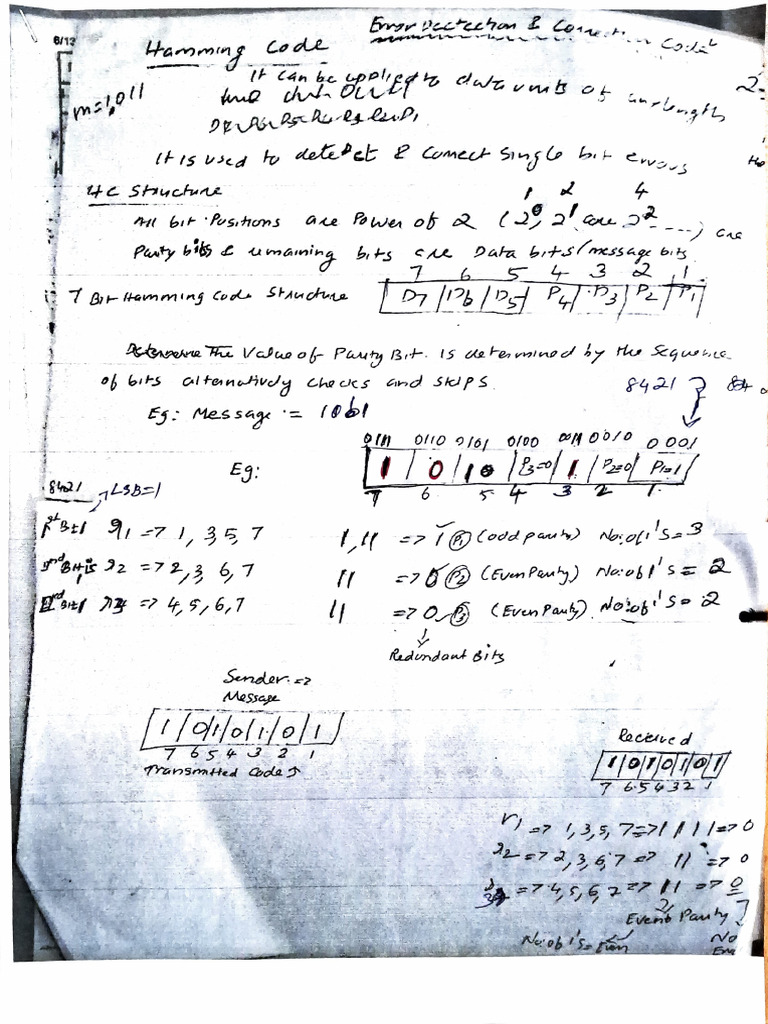 6/13
Error Detection & Correction Code
Hamming Code
It can be applied to data units of any length
m=1011
It is used to detect & correct single bit errors
HC Structure
1 2 4
All bit positions are power of 2 (2^0, 2^1 are 2^2 ----) are
Parity bits & remaining bits are Data bits/message bits
7 6 5 4 3 2 1
7 Bit Hamming Code Structure D7 D6 D5 P4 D3 P2 P1
The Value of Parity Bit is determined by the sequence
of bits alternatively checks and skips.
8421
Eg: Message = 1011
0111 0110 0101 0100 0011 0010 0001
Eg: 1 0 1 P3=0 1 P2=0 P1=1
7 6 5 4 3 2 1
8421 → LSB=1
1st Bit1 r1 => 1, 3, 5, 7 1, 11 => 1 P1 (odd parity) No: of 1's = 3
2nd Bit is 1 r2 => 2, 3, 6, 7 11 => 0 P2 (Even Parity) No: of 1's = 2
3rd Bit 1 => 4, 5, 6, 7 11 => 0 P3 (Even Parity) No: of 1's = 2
Redundant Bits
Sender =>
Message
1 0 1 0 1 0 1
7 6 5 4 3 2 1
Transmitted Code
Received
1 0 1 0 1 0 1
7 6 5 4 3 2 1
r1 => 1, 3, 5, 7 => 1 1 1 1 => 0
r2 => 2, 3, 6, 7 => 11 => 0
=> 4, 5, 6, 7 => 11 => 0
Even Parity
No: of 1's = Even
No